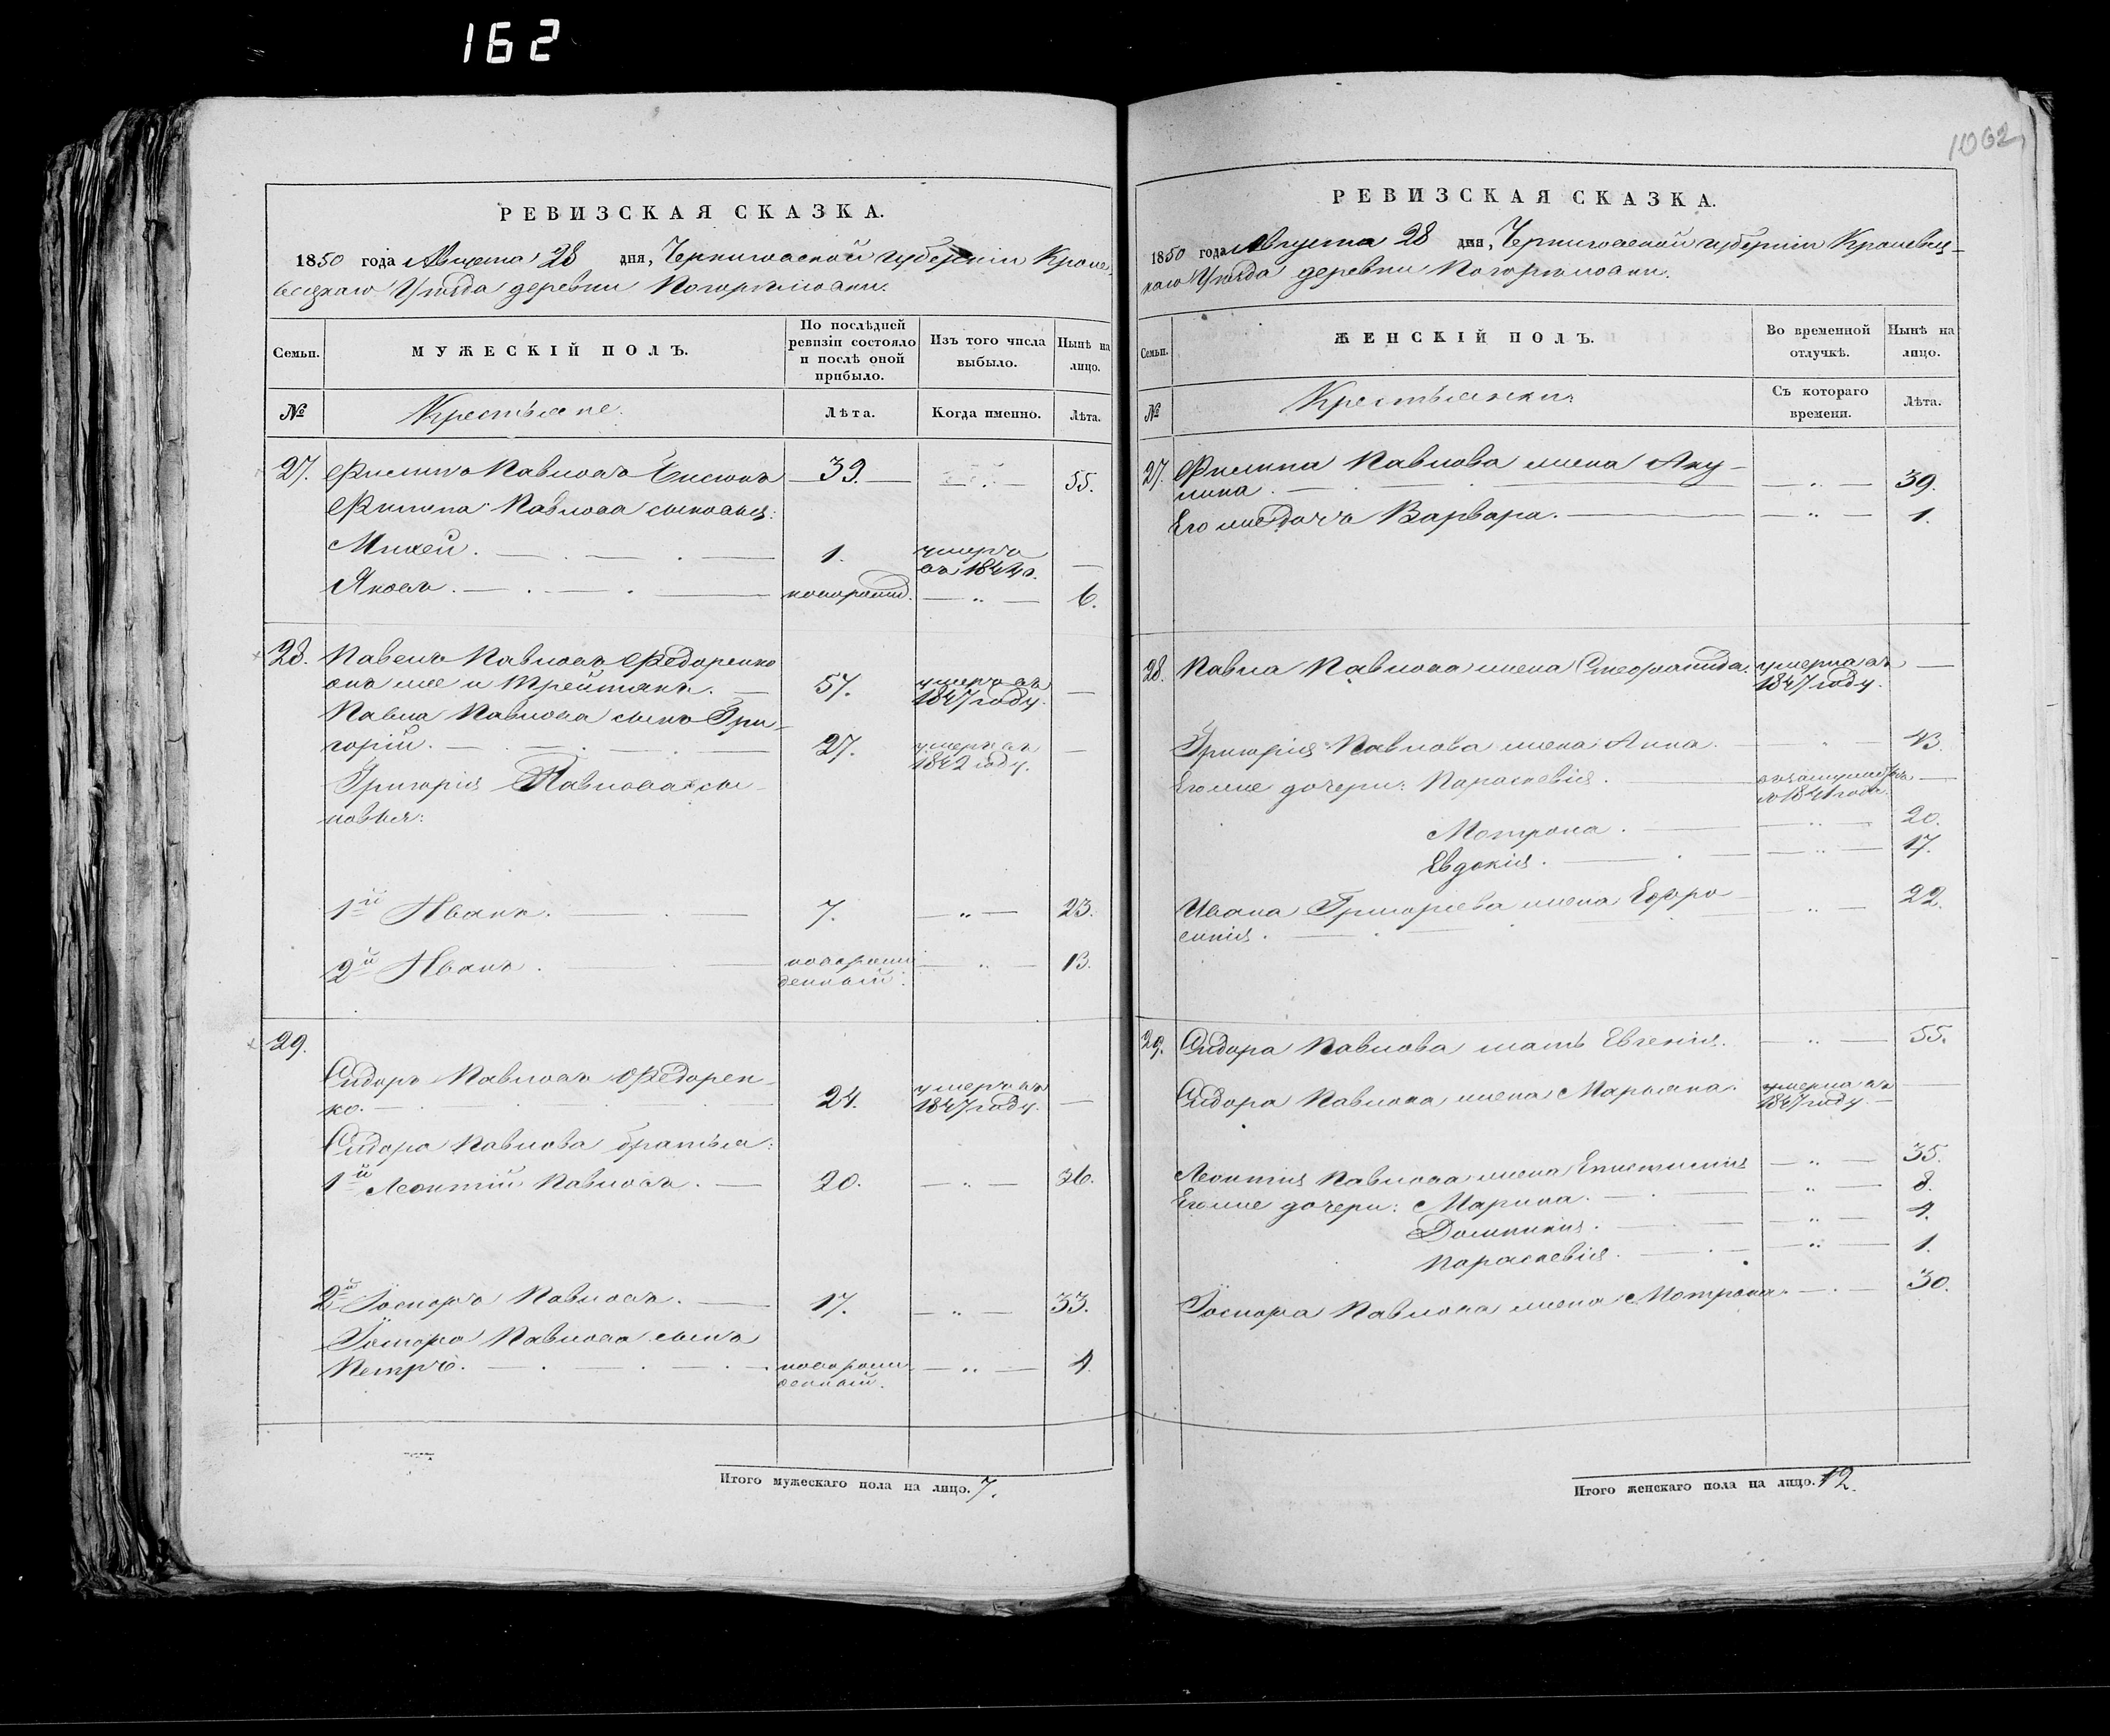 162
1062
РЕВИЗСКАЯ СКАЗКА.
1850 года Августа 28 дня, Черниговской губерніи Кроле-
вецкаго Уѣзда деревни Погорѣловки.
Семьи.
МУЖЕСКІЙ ПОЛЪ.
По послѣдней
ревизіи состояло
и послѣ оной
прибыло.
Изъ того числа
выбыло.
Нынѣ на
лицо.
№
Крестьяне.
Лѣта.
Когда именно.
Лѣта.
27. Филипъ Павловъ 39. 55.
Филипа Павлова сыновья:
Михей. 1. умеръ
въ 184
Яковъ. новорожд. 6.
28. Павелъ Павловъ Федоренко
онъ же и 57. умеръ въ
1847 году.
Павла Павлова сынъ Гри-
горій. 27. умеръ въ
1842 году.
Григорія Павлова сы-
новья:
1й Иванъ. 7. 23.
2й Иванъ. новорож
денный. 13.
29.
Сидоръ Павловъ Федорен-
ко. 24. умеръ въ
1847 году.
Сидора Павлова братья:
1й Леонтій Павловъ. 20. 36.
2й Іосифъ Павловъ. 17. 33.
Павлова сынъ
Петръ. новорож
денный. 4.
Итого мужескаго пола на лицо. 7.
РЕВИЗСКАЯ СКАЗКА.
1850 года Августа 28 дня, Черниговской губерніи Кролевец-
каго Уѣзда деревни Погорѣловки.
Семьи.
ЖЕНСКІЙ ПОЛЪ.
Во временной
отлучкѣ.
Нынѣ на
лицо.
№
Крестьянки.
Съ котораго
времени.
Лѣта.
27. Филипа Павлова жена Аку-
лина. 39.
Его же дочь Варвара. 1.
28. Павла Павлова жена Стефанида. умерла въ
1847 году.
Григорія Павлова жена Анна. 43.
Его же дочери: Параскевія. въ замуж
1841 года.
Мотрона. 20.
Евдокія. 17.
Ивана Григорьева жена Ефро
синія. 22.
29. Сидора Павлова мать Евгенія. 55.
Сидора Павлова жена Марьяна. умерла въ
1847 году.
Леонтія Павлова жена 35.
Его же дочери: Марина. 8.
Домникія. 4.
Параскевія. 1.
Павлова жена Мотрона. 30.
Итого женскаго пола на лицо. 12.